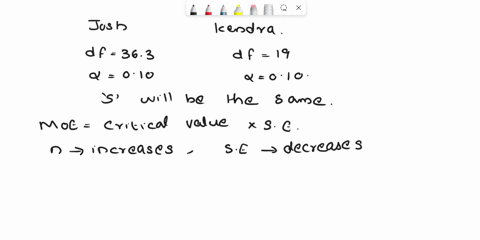 Josh Kendra.
df = 36.3 df = 19
α = 0.10 α = 0.10.
'S' will be the same.
MoE = critical value × S.E.
n → increases, S.E → decreases